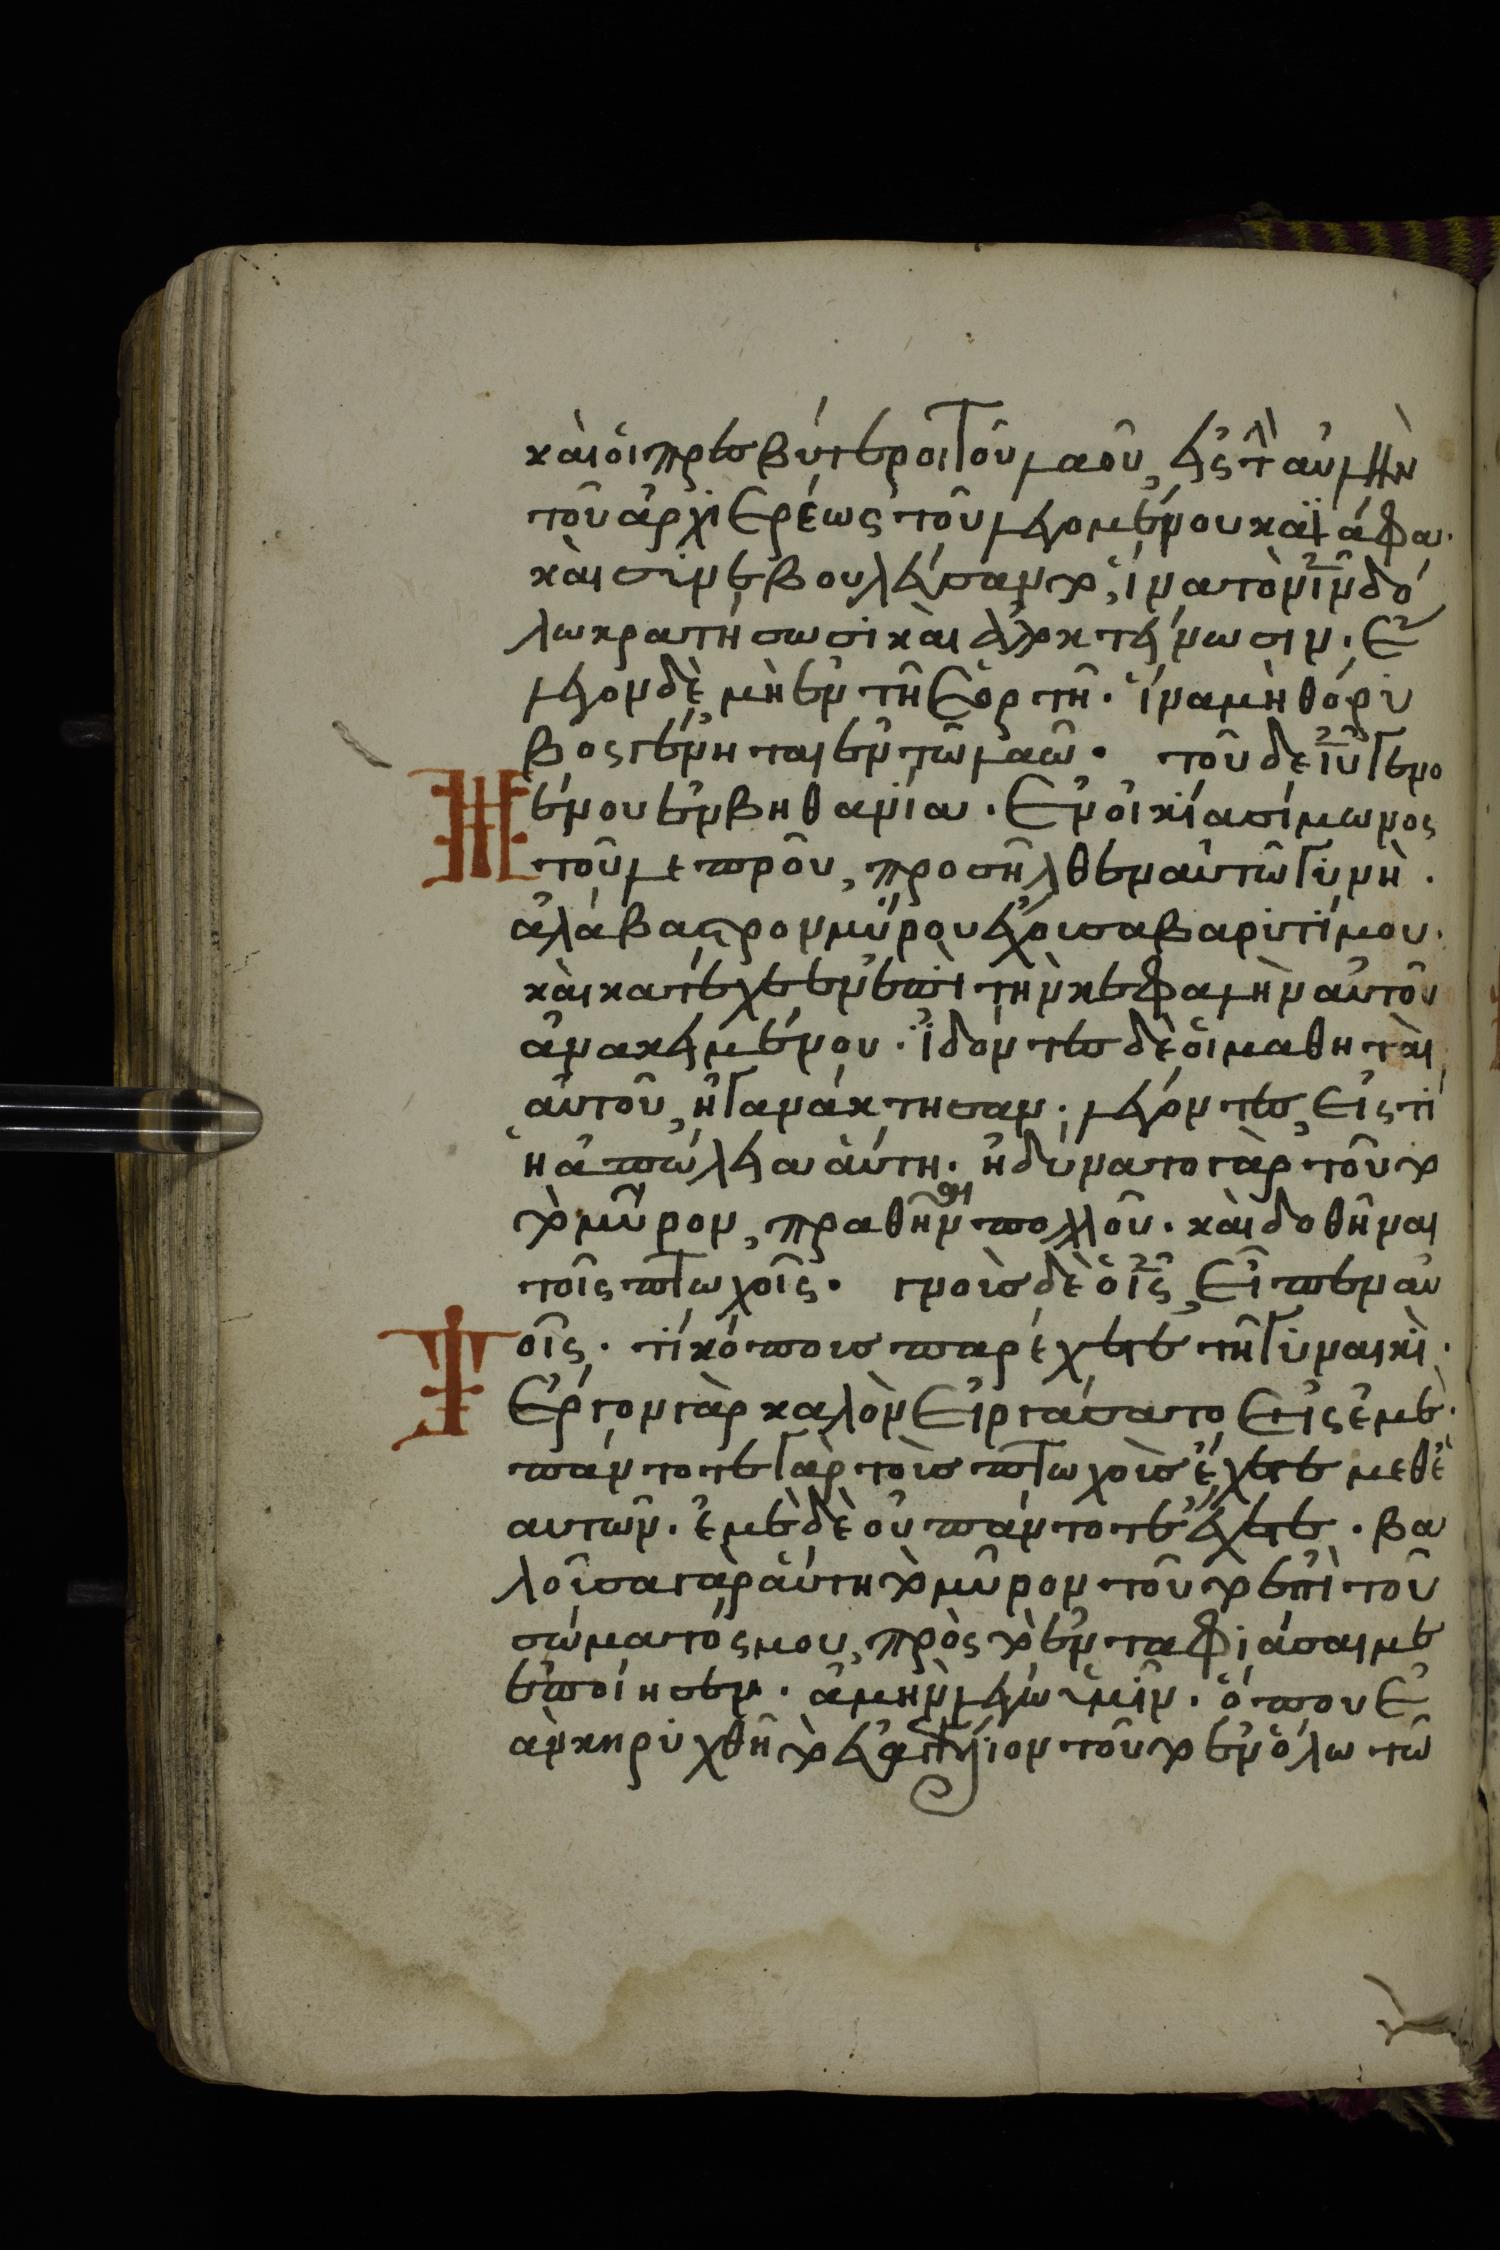 καὶ οἱ πρεσβύτεροι τοῦ λαοῦ, εἰς τὴν αὐλὴν
τοῦ ἀρχιερέως τοῦ λεγομένου καϊάφα.
καὶ συνεβουλεύσαντο, ἵνα τὸν ἰν δό
λω κρατήσωσι καὶ ἀποκτείνωσιν. ἔ
λεγον δὲ μὴ ἐν τῆ ἑορτῆ. ἵνα μὴ θόρυ
βος γένηται ἐν τῶ λαῶ. τοῦ δὲ ἰυ γενο
μένου ἐν βηθανία. ἐν οἰκία σίμωνος
τοῦ λεπροῦ, προσῆλθεν αὐτῶ γυνὴ.
ἀλάβαστρον μύρου ἔχουσα βαρυτίμου.
καὶ κατέχεεν ἐπὶ τὴν κεφαλὴν αὐτοῦ
ἀνακειμένου. ἰδόντες δὲ οἱ μαθηταὶ
αὐτοῦ, ἠγανάκτησαν. λέγοντες, εἰς τί
ἡ ἀπώλεια αὕτη. ἠδύνατο γὰρ τοῦτο
τὸ μῦρον, πραθῆναι πολλοῦ. καὶ δοθῆναι
τοῖς πτωχοῖς. γνοὺς δὲ ὁ ἰς, εἶπεν αὐ
τοῖς. τί κόπους παρέχετε τῆ γυναικὶ.
ἔργον γὰρ καλὸν εἰργάσατο εἰς ἐμὲ.
πάντοτε γὰρ τοὺς πτωχοὺς ἔχετε μεθ' ἑ
αυτῶν. ἐμὲ δὲ οὐ πάντοτε ἔχετε. βα
λοῦσα γὰρ αὕτη τὸ μῦρον τοῦτο ἐπὶ τοῦ
σώματός μου, πρὸς τὸ ἐνταφιάσαι με
ἐποίησεν. ἀμὴν λέγω ὑμῖν. ὅπου ἐ
ὰν κηρυχθῆ τὸ εὐαγγέλιον τοῦτο ἐν ὅλω τῶ